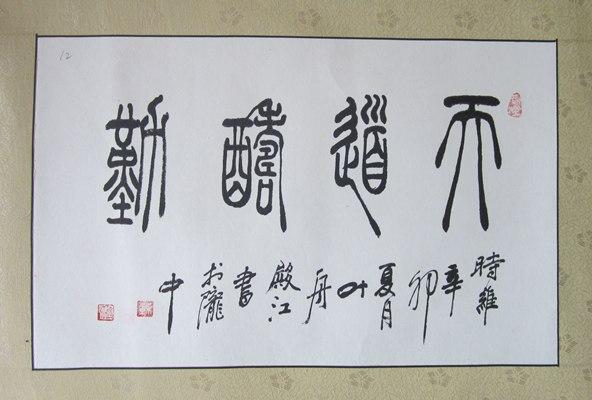 12
天道酬勤
時維辛卯夏月叶舟殿江書於隴中